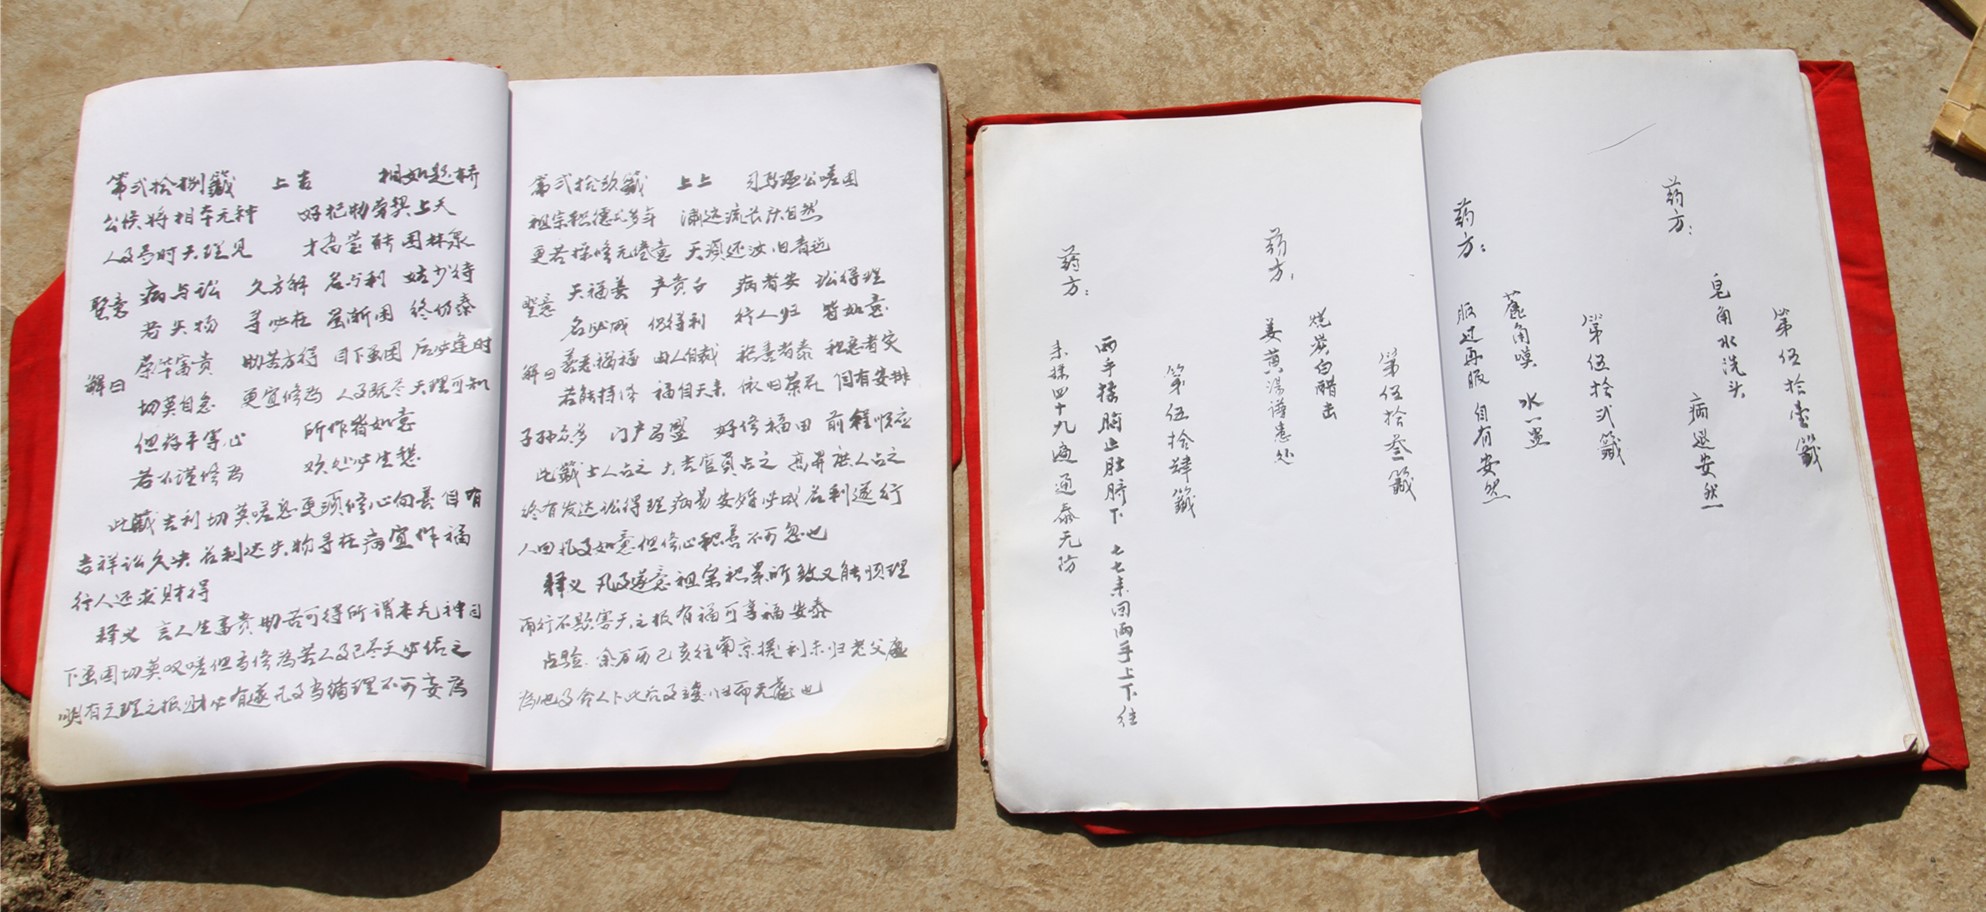 第弍拾捌籤 上吉 相如题桥
公侯将相本无种 好把勤劳契上天
人事尽时天理见 才高岂能困林泉
坚意 病与讼 久方解 名与利 姑少待
若失物 寻必在 虽断困 终仍泰
解曰 荣华富贵 勤苦方得 目下虽困 后必逢时
切莫自怠 更宜修为 人事既尽 天理可知
但存平等心 所作皆如意
若不谨修为 欢处必生愁
此籤吉利切莫嗟怨更须修心向善自有
吉祥讼久决 名利迟失物寻在病宜作福
行人还求财得
释义 言人生富贵勤苦可得所谓本无种目
下虽困切莫叹嗟但当修为若人事已尽天必佑之
明有天理之报财必有遂凡事当循理不可妄为
第弍拾玖籤 上上 司马温公嗟困
祖宗积德几多年 源远流长庆自然
更若操修无倦意 天须还汝旧青毡
坚意 天福善 产贵子 病者安 讼得理
名必成 倍得利 行人归 皆如意
解曰 善恶祸福 由人自裁 积善者泰 积恶者灾
若能持济 福自天来 依旧荣花 自有安排
子孙众多 门户高盛 好修福田 前程顺应
此籤士人占之 大吉官员占之 高昇庶人占之
终有发达讼得理病易安婚必成名利遂行
人回凡事如意但修心积善不可忽也
释义 凡事遂意祖宗积累所致又能顺理
而行不欺害天之报有福可享福安泰
占验 余万历己亥往南京援利未归老父虑
为他事令人卜此后事遂归而无虑也
第伍拾壹籤
药方：
皂角水洗头
病退安然
第伍拾弍籤
药方：
鹿角嗼 水一盅
服过再服 自有安然
第伍拾叁籤
药方：
烧炭白醋击
姜黄汤谨患处
第伍拾肆籤
药方：
两手搭胸止肚脐下 七七来回两手上下往
来揉四十九遍通泰无防